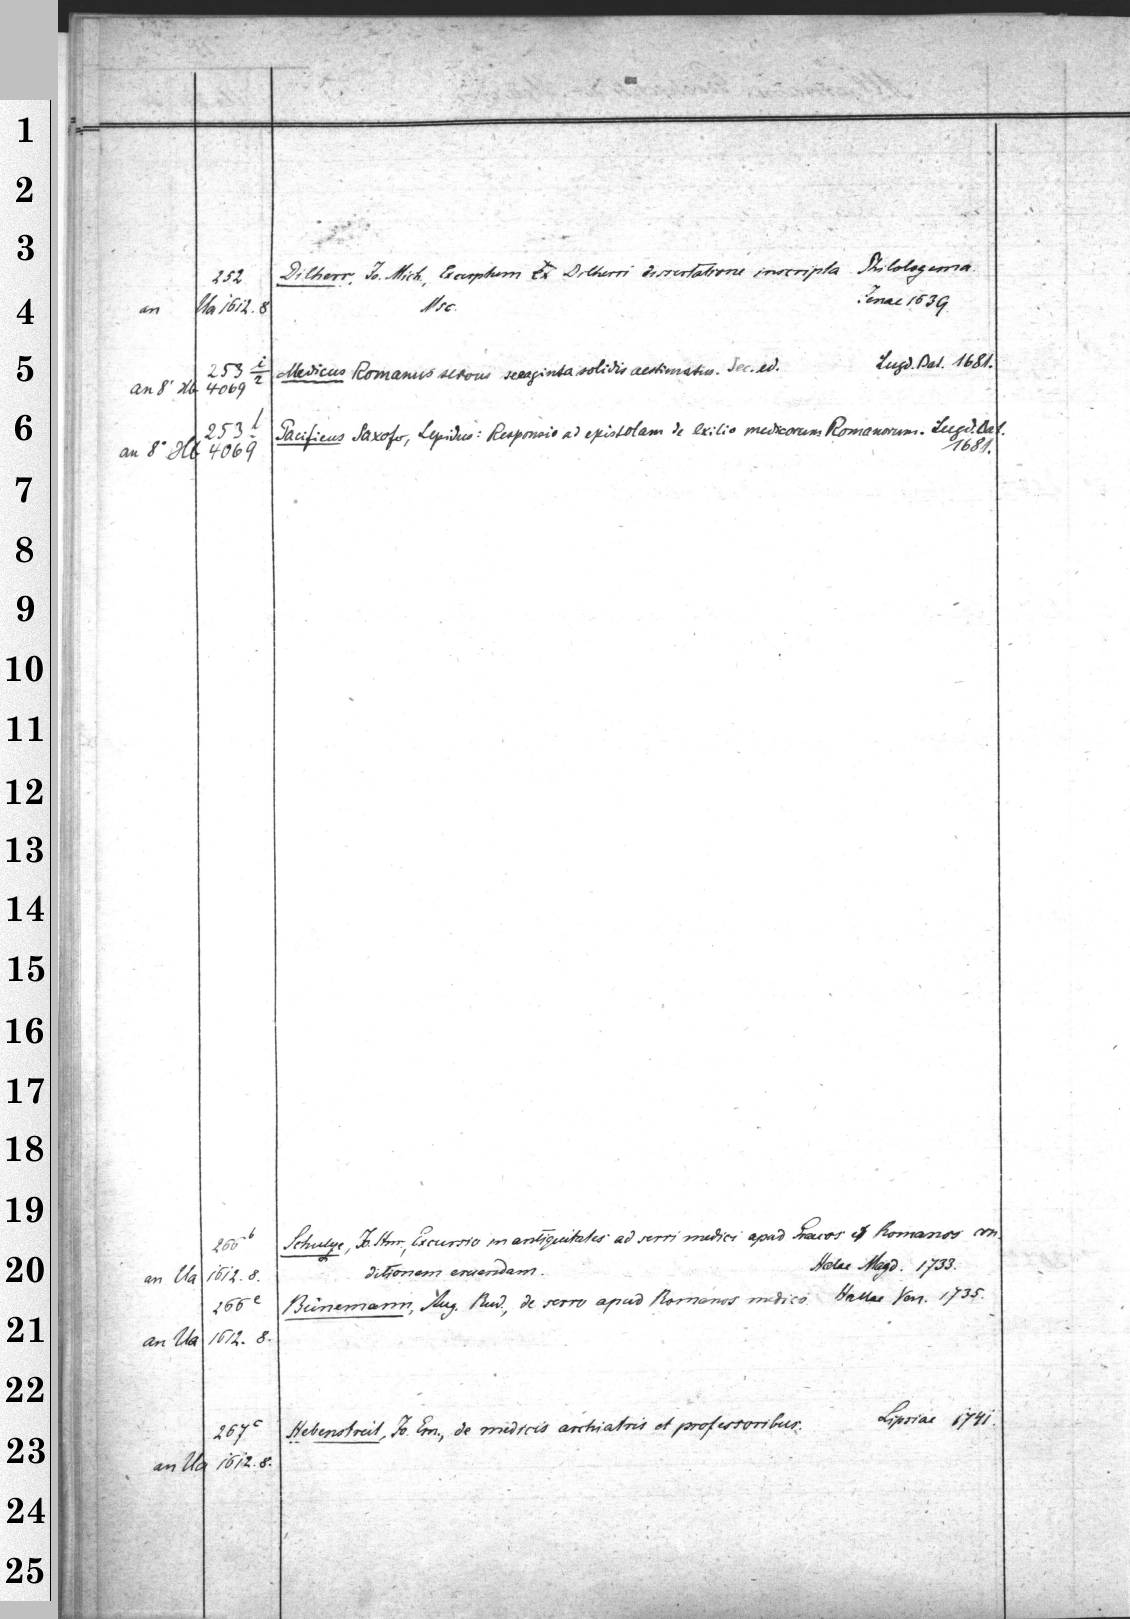 1
2
3
252 Dilherr, Jo. Mich., Excerptum Ex Dilherri dissertatione inscripta Philologema
4
an Ua 1612. 8 Msc. Jenae 1639
5
253 i/2 Medicus Romanus servus sexaginta solidis aestimatus. Sec. ed. Lugd. Bat. 1681.
an 8° Hb 4069
6
253 l Pacificus Saxofr, Lepidus: Responsio ad epistolam de exilio medicorum Romanorum. Lugd. Bat.
an 8° Hb 4069 1681.
7
8
9
10
11
12
13
14
15
16
17
18
19
266 b Schulze, Jo. Hnr., Excursio in antiquitates ad servi medici apud Graecos et Romanos con-
20
an Ua 1612. 8. ditionem eruendam. Halae Magd. 1733.
266 c Bünemann, Aug. Rud., de servo apud Romanos medico Hallae Ven. 1735.
21
an Ua 1612. 8.
22
267 c Hebenstreit, Jo. Ern., de medicis archiatris et professoribus. Lipsiae 1741.
23
an Ua 1612. 8.
24
25